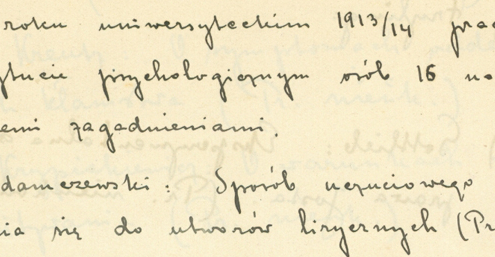 roku uniwersyteckim 1913/14 prac
ytucie psychologicznym osób 16 na
emi zagadnieniami.
damczewski: Sposób uczuciowego
ia się do utworów lirycznych (Pr